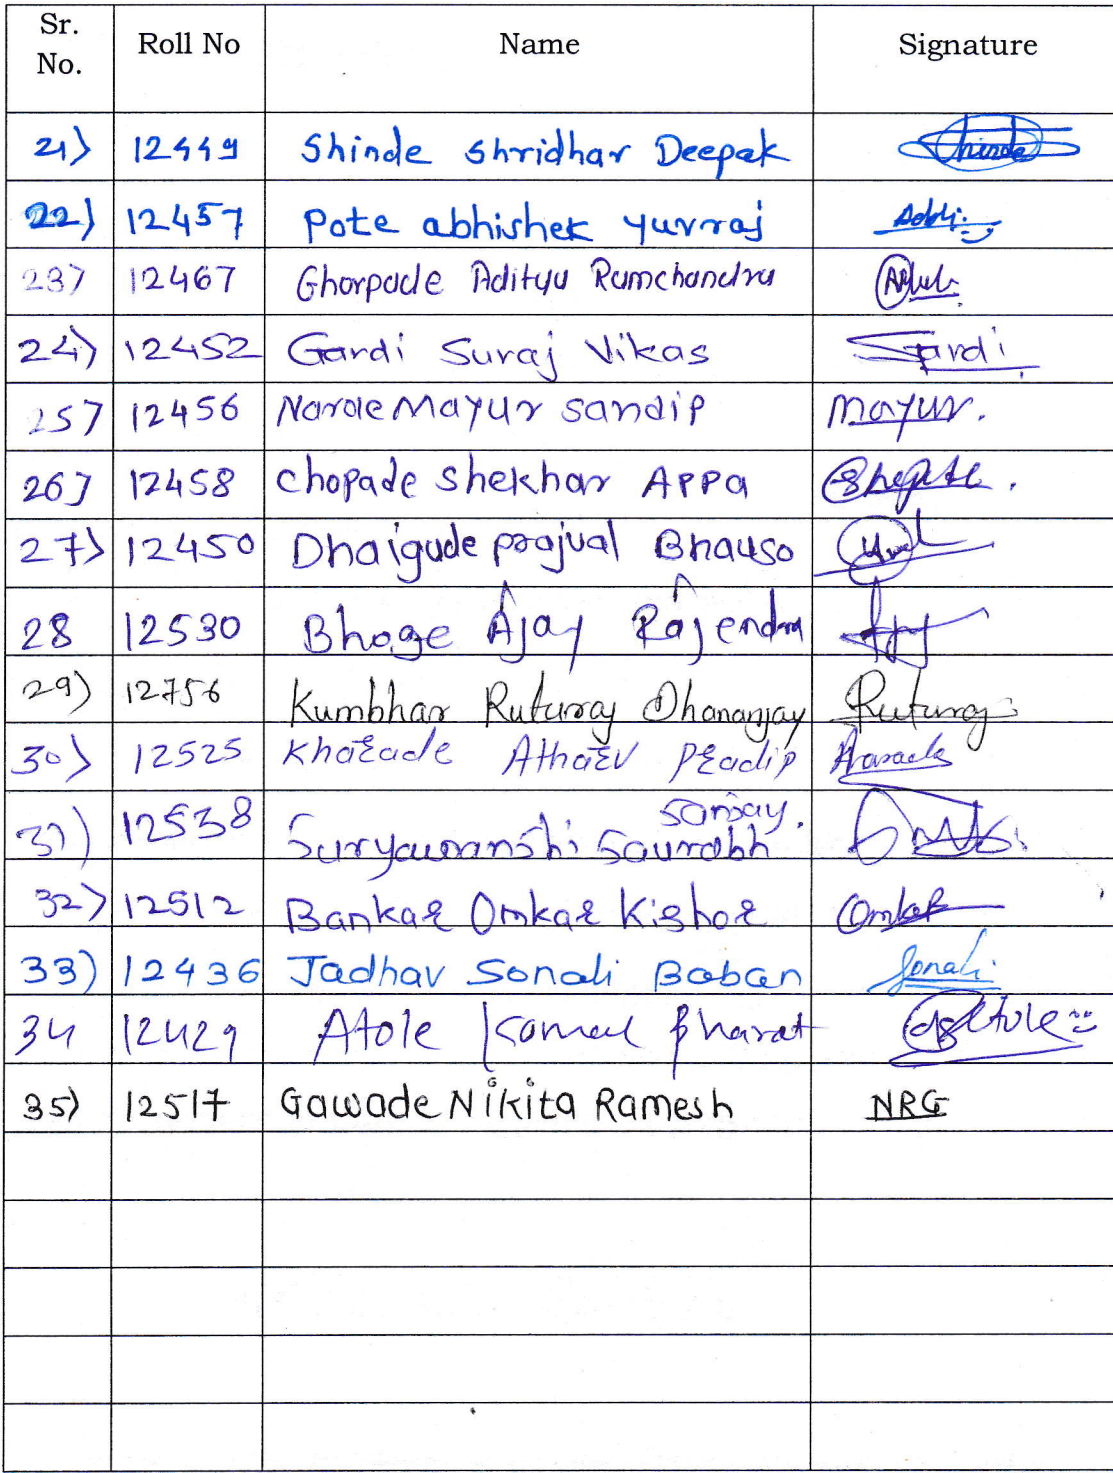 Sr. No. Roll No Name Signature
21) 12449 Shinde Shridhar Deepak Shinde
22) 12457 Pote abhishek yuvraj
23) 12467 Ghorpade Aditya Ramchandra
24) 12452 Gardi Suraj Vikas Gardi
25) 12456 Narole Mayur Sandip Mayur.
26) 12458 Chopade Shekhar Appa
27) 12450 Dhaigude prajval Bhauso
28 12530 Bhoge Ajay Rajendra Ajay
29) 12756 Kumbhar Ruturaj Dhananjay Ruturaj
30) 12525 Kharade Atharv Pradip
31) 12538 Suryawanshi Saurabh Sanjay.
32) 12512 Bankar Omkar Kishor Omkar
33) 12436 Jadhav Sonali Baban Sonali
34 12429 Atole Komal Bharat Atole
35) 12517 Gawade Nikita Ramesh NRG